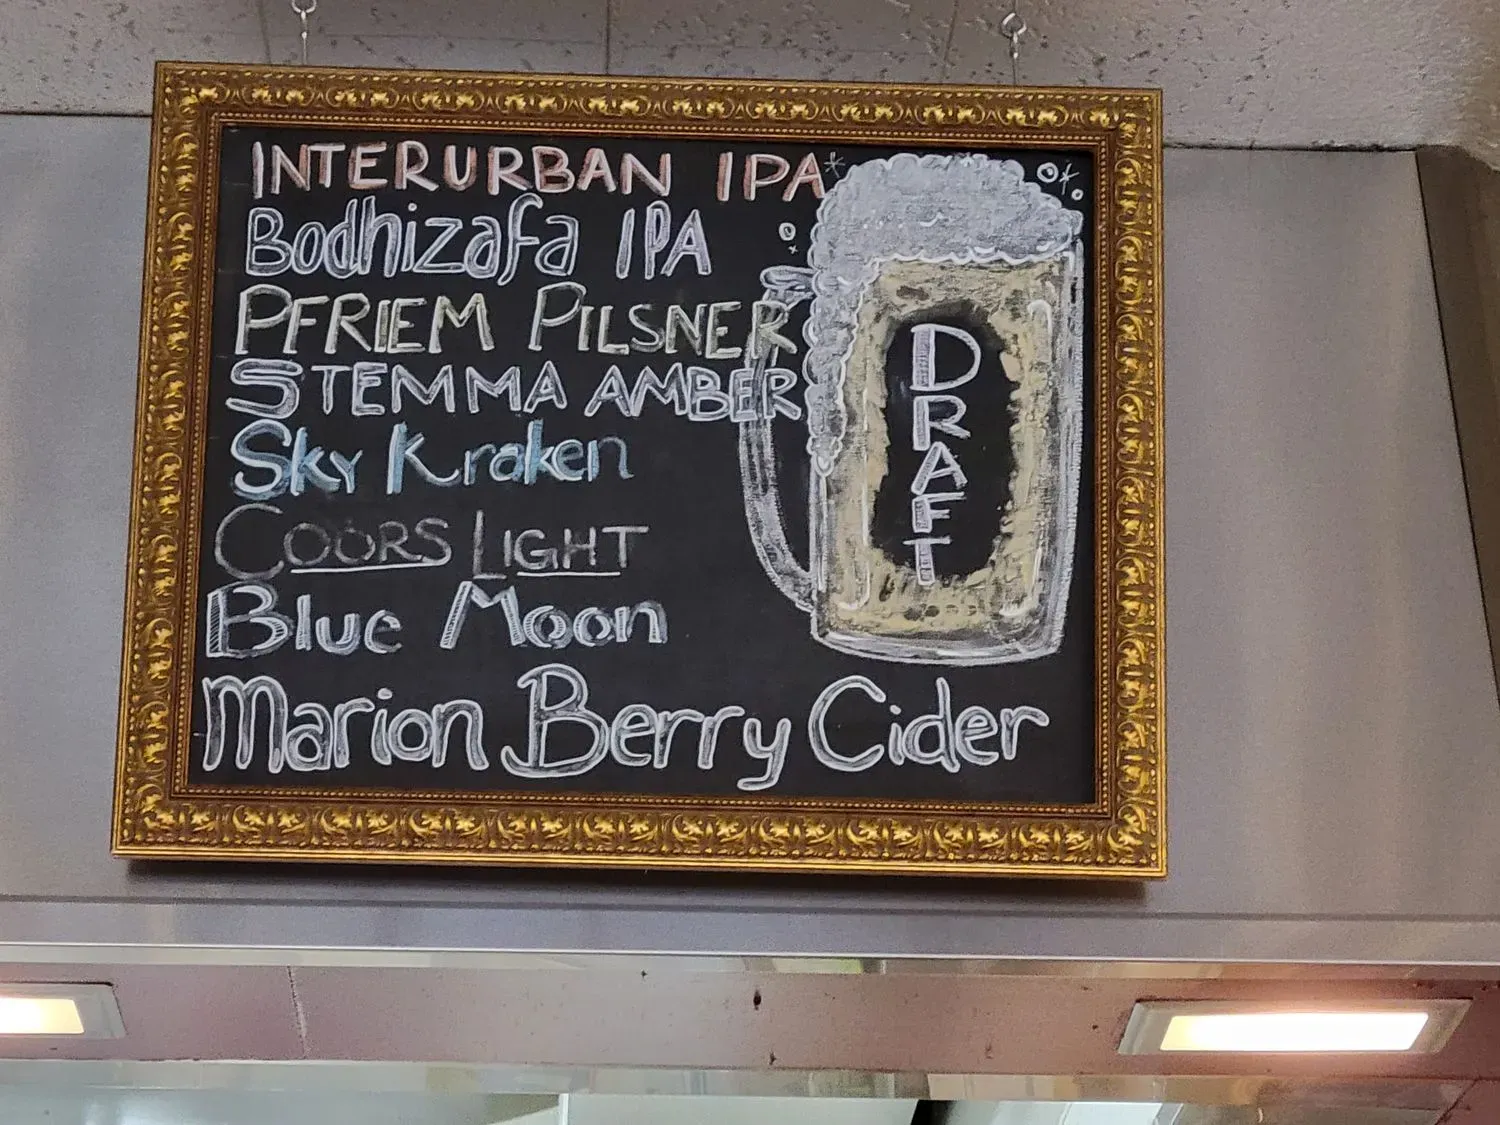 INTERURBAN IPA
Bodhizafa IPA
PFRIEM PILSNER
STEMMA AMBER
Sky Kraken
COORS LIGHT
Blue Moon
Marion Berry Cider
DRAFT